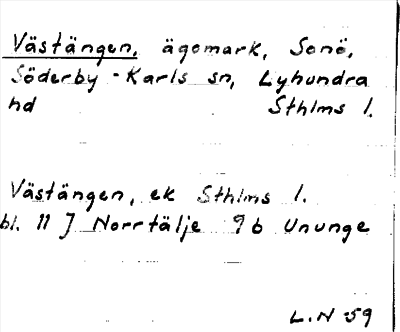 Västängen, ägomark, Sonö,
Söderby-Karls sn, Lyhundra
hd Sthlms l.
Västängen, ek Sthlms l.
bl. 11 J Norrtälje 9b Ununge
L.N 59